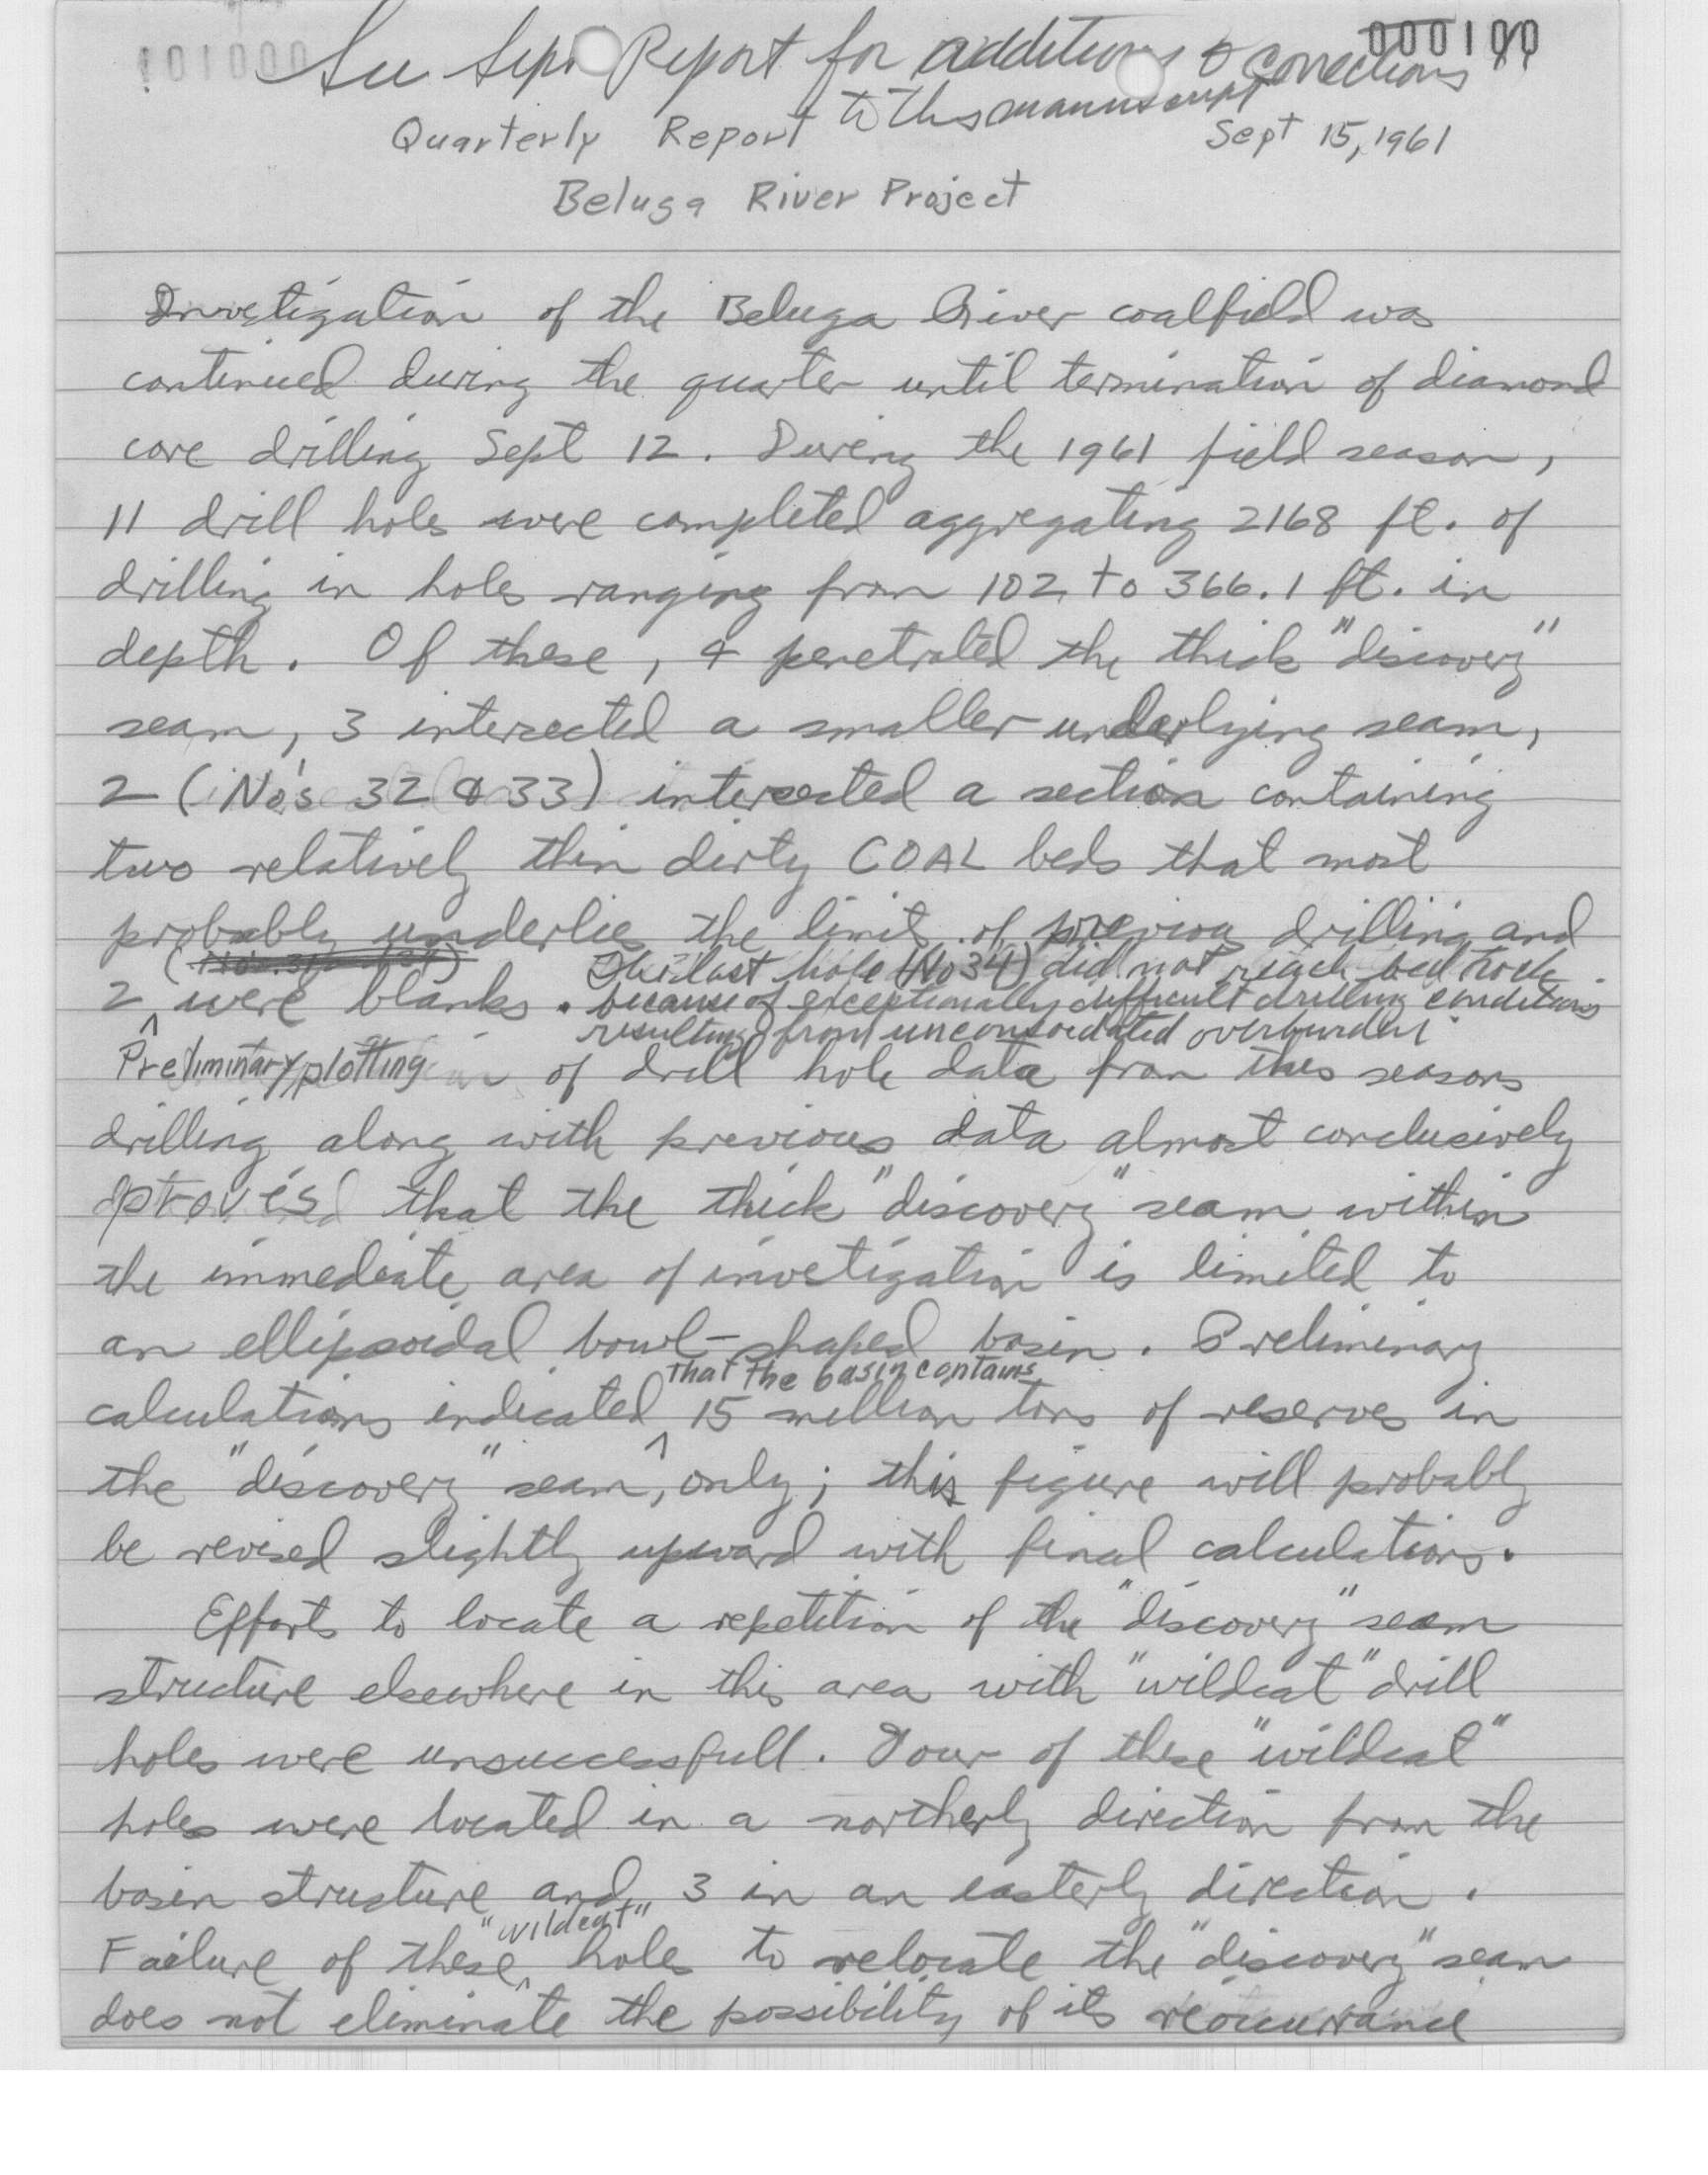 000100
See Sept Report for additions & corrections
to this manuscript
Quarterly Report
Sept 15, 1961
Beluga River Project
Investigation of the Beluga River coalfield was
continued during the quarter until termination of diamond
core drilling Sept 12. During the 1961 field season,
11 drill holes were completed aggregating 2168 ft. of
drilling in holes ranging from 102 to 366.1 ft. in
depth. Of these, 4 penetrated the thick "discovery"
seam, 3 intersected a smaller underlying seam,
2 (No's 32 & 33) intersected a section containing
two relatively thin dirty COAL beds that most
probably underlie the limit of previous drilling and
2 were blanks. The last hole (No 34) did not reach bed rock
because of exceptionally difficult drilling conditions
resulting from unconsolidated overburden.
Preliminary plotting of drill hole data from this seasons
drilling along with previous data almost conclusively
proves that the thick "discovery" seam within
the immediate area of investigation is limited to
an ellipsoidal bowl-shaped basin. Preliminary
that the basin contains
calculations indicated ^ 15 million tons of reserves in
the "discovery" seam, only; this figure will probably
be revised slightly upward with final calculations.
Efforts to locate a repetition of the "discovery" seam
structure elsewhere in this area with "wildcat" drill
holes were unsuccessfull. Four of these "wildcat"
holes were located in a northerly direction from the
basin structure and 3 in an easterly direction.
"wildcat"
Failure of these ^ holes to relocate the "discovery" seam
does not eliminate the possibility of its reoccurrance